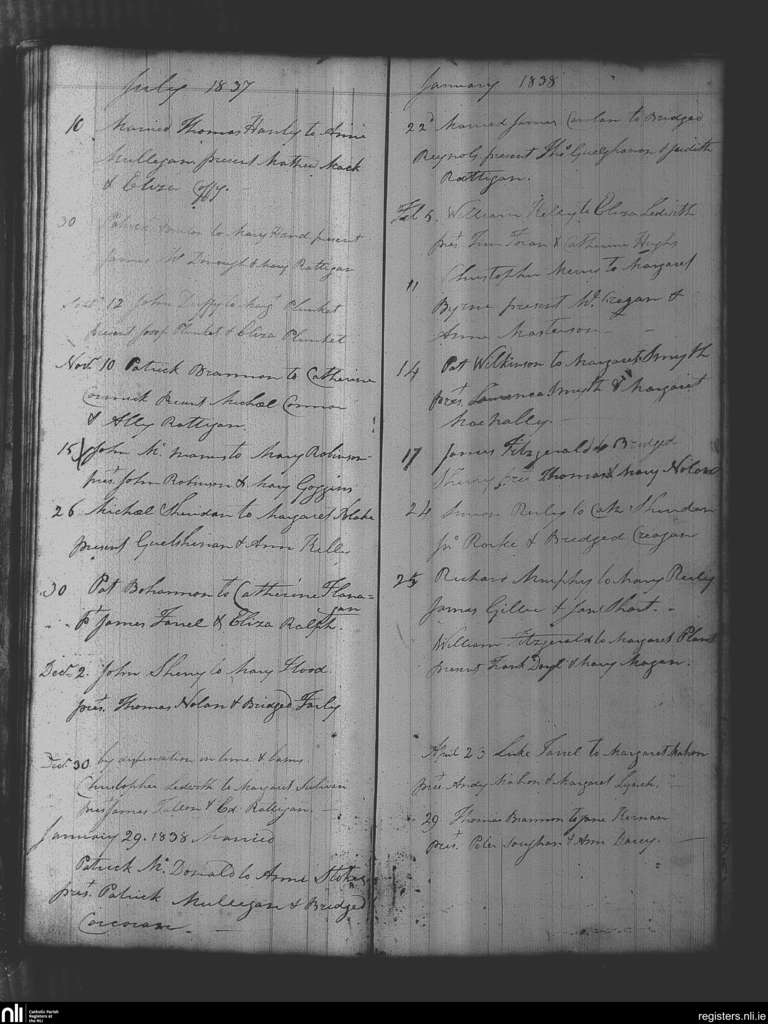 July 1837
10 Married Thomas Hanly to Anne
Mullegan present Mathew Mack
& Eliza Coffy.
30 Patrick to Mary Hand present
James Mc Donough & Mary Rattigan
12 John Duffy to Margt Plunket
present Josep Plunket & Eliza Plunket
Novr 10 Patrick Brannon to Catherine
Cormick Michael Connor
& Ally Rattigan.
15 John Mc to Mary Robinson
prest John Robinson & Mary Goggins
26 Michael Sheridan to Margaret Blake
present & Ann Kelly
30 Pat Bohannon to Catherine Flana-
gan
Pt James Farrel & Eliza Ralph.
Decr 2 John Sherry to Mary Flood
prest Thomas Nolan & Bridged Farly
Decr 30 by dispensation in time & banns
Christopher Ledwith to Margaret
prest James & Ed Rattigan.
January 29. 1838 Married
Patrick Mc Donald to Anne Stokes
prest Patrick Mullegan & Bridged
Corcoran
January 1838
22d Married James Conlan to Bridged
Reynols present Thos & Judith
Rattigan.
Feb 5. William Kelly to Eliza Ledwith
prest Foran & Catherine Hughs
11 Christopher to Margaret
Byrne present Wm Cregan &
Anne Masterson
14 Pat Wilkinson to Margaret Smyth
prest Lawrence Smyth & Margaret
MacNally
17 James Fitzgerald to Bridged
Sherry pres Thomas & Mary Nolan
24 Simon Reily to Cath Sheridan
Jn Rorke & Bredged Creagan
25 Richard Murphy to Mary Reily
James & Jane Short.
William Fitzgerald to Margaret
present Frank Doyl & Mary Magan.
April 23 Luke Farrel to Margaret Mahon
pres Andy Mahon & Margaret Lynch.
29 Thomas Brannon to Jane Kernan
prest Peter & Ann Darcy.
nli
Catholic Parish
Registers at
the NLI
registers.nli.ie